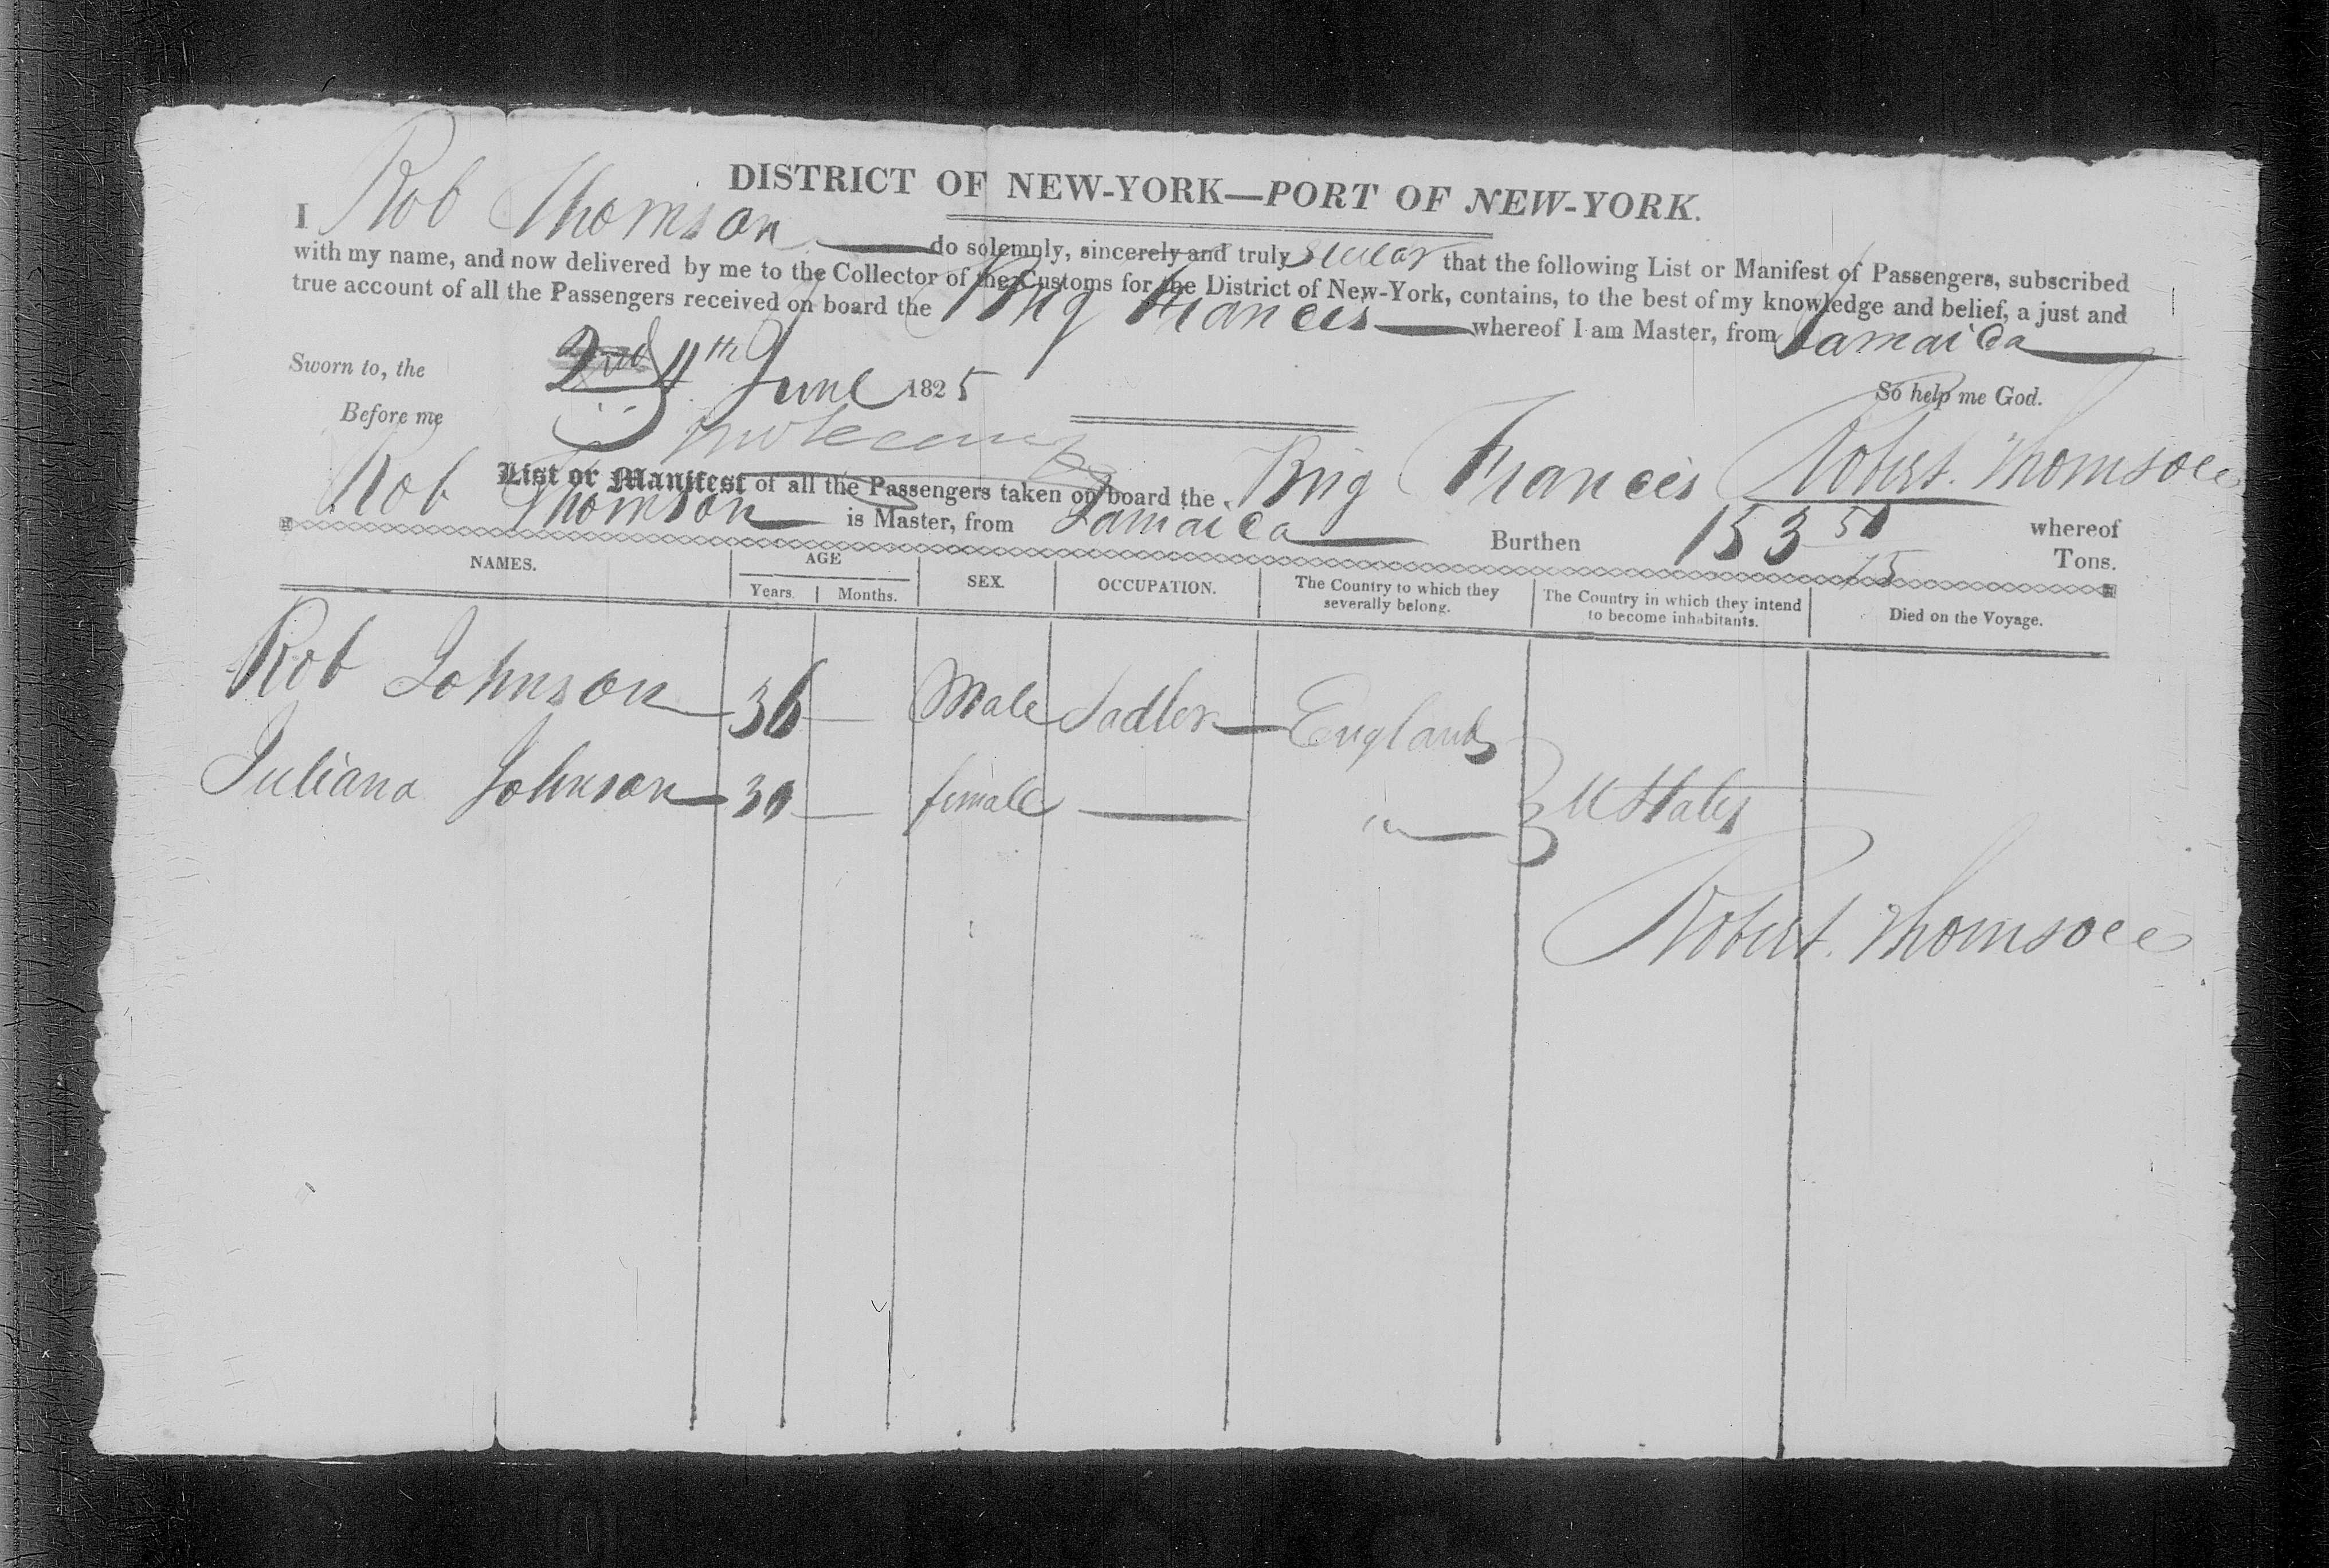 DISTRICT OF NEW-YORK—PORT OF NEW-YORK.
I Rob Thomson do solemnly, sincerely and truly swear that the following List or Manifest of Passengers, subscribed
with my name, and now delivered by me to the Collector of the Customs for the District of New-York, contains, to the best of my knowledge and belief, a just and
true account of all the Passengers received on board the Brig Francis whereof I am Master, from Jamaica
Sworn to, the 2nd 4th June 1825 So help me God.
Before me
Robert Thomson
List or Manifest of all the Passengers taken on board the Brig Francis whereof
Rob Thomson is Master, from Jamaica Burthen 153 Tons.
NAMES. AGE SEX. OCCUPATION. The Country to which they severally belong. The Country in which they intend to become inhabitants. Died on the Voyage.
Years. Months.
Rob Johnson 36 — Male Sadler England
Juliana Johnson 30 — female — U States
Robert Thomson